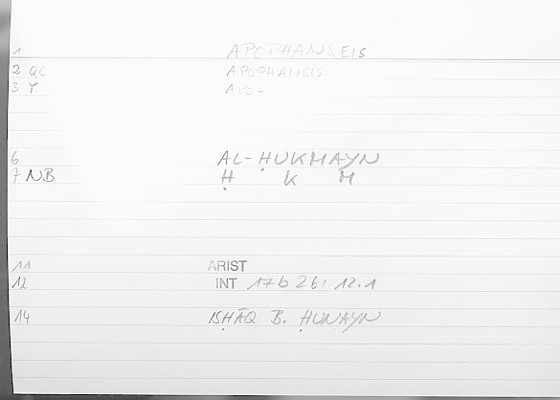 1 APOPHANSEIS
2 QC APOPHANSIS
3 Y APO-
6 AL-ḤUKMAYN
7 NB Ḥ K M
11 ARIST
12 INT 17b 26: 12.1
14 ISḤĀQ B. ḤUNAYN